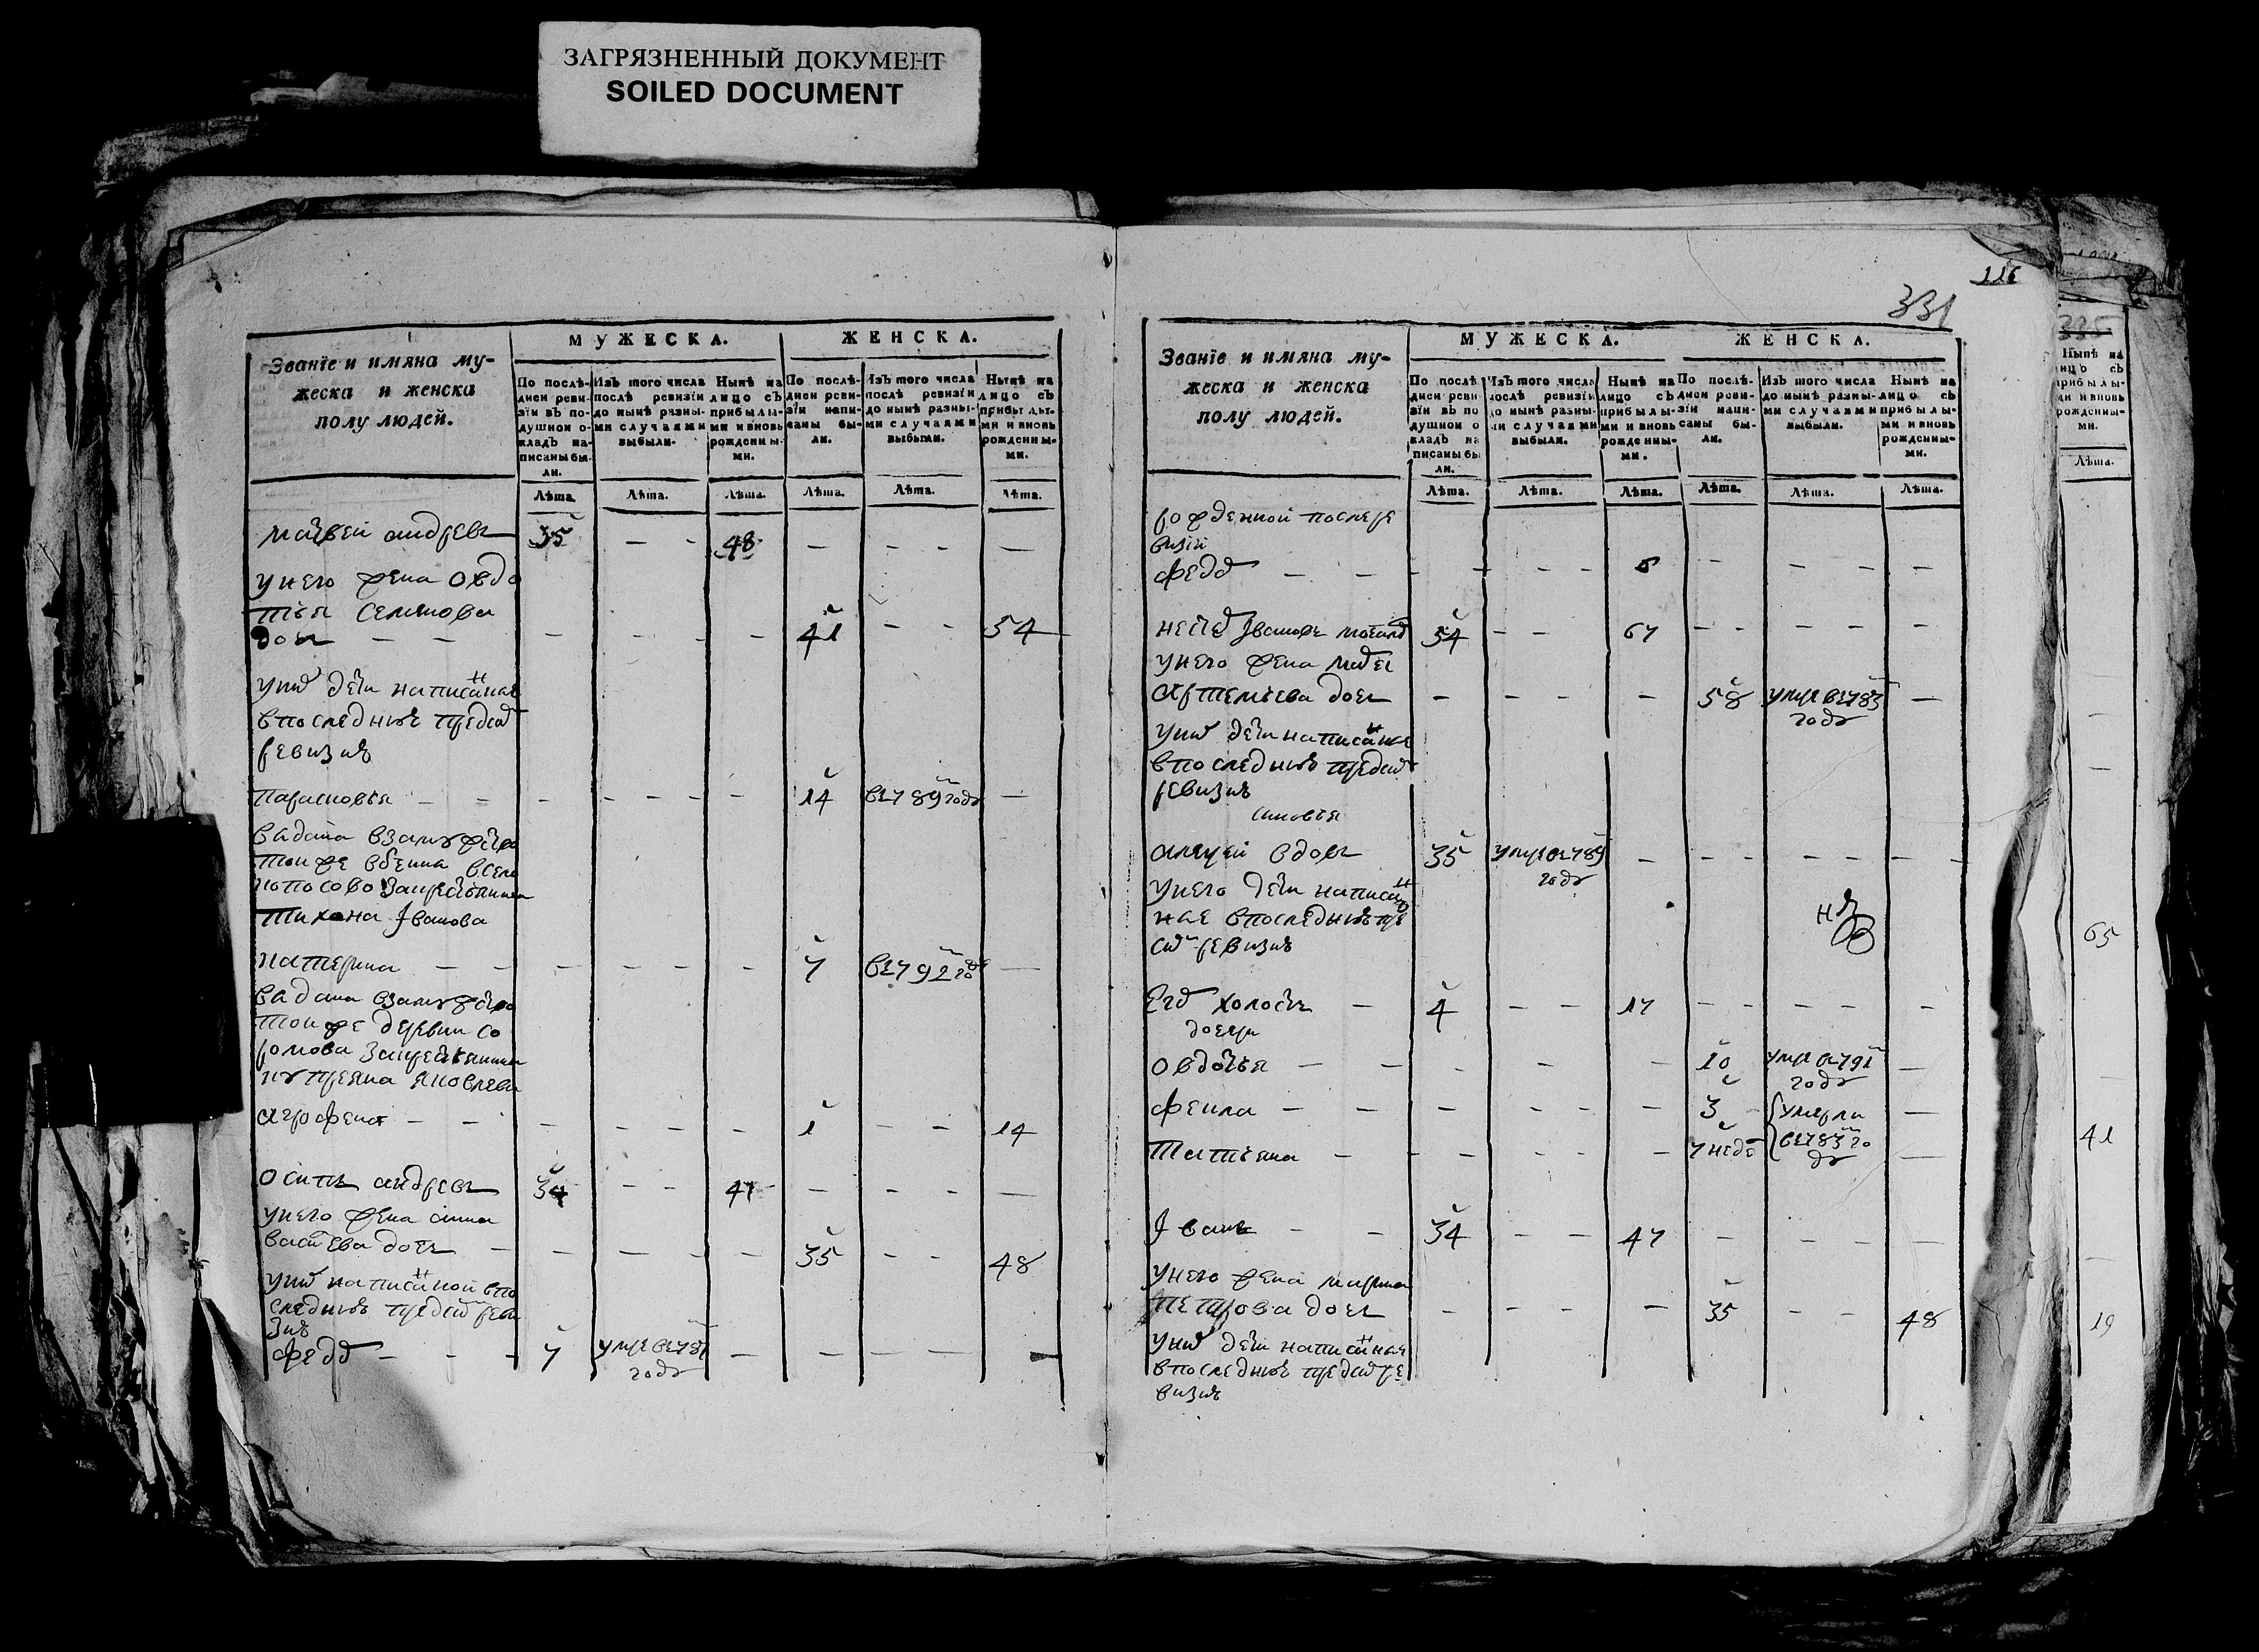 ЗАГРЯЗНЕННЫЙ ДОКУМЕНТ
SOILED DOCUMENT
Званїе и имяна му-
жеска и женска
полу людей.
МУЖЕСКА.
ЖЕНСКА.
По послѣ-
дней реви-
зїи въ по-
душной о-
кладъ на-
писаны бы-
ли.
Изъ того числа
послѣ ревизїи
до нынѣ разны-
ми случаями
выбыли.
Нынѣ на
лицо съ
прибылы-
ми и вновь
рожденны-
ми.
По послѣ-
дней реви-
зїи напи-
саны бы-
ли.
Изъ того числа
послѣ ревизїи
до нынѣ разны-
ми случаями
выбыли.
Нынѣ на
лицо съ
прибылы-
ми и вновь
рожденны-
ми.
Лѣта. Лѣта. Лѣта. Лѣта. Лѣта. Лѣта.
матвей андреевъ 35 — — 48 — — — —
у него жена овдо
тья семенова
дочь — — — — — — 41 — — 54
у них дети написанные
в последнюю пред сим
ревизию
парасковья — — — — — — — 14 в 1789 году —
выдана в замужество
той же вотчины в село
за крестьянина
тихона Iванова
катерина — — — — — — 7 в 1792 году —
выдана в замужество
той же деревни со
ромова за крестьянина
куприяна яковлева
агрофена — — — — — — 1 — — 14
осипъ андреевъ 34 — — 47 — — — —
у него жена анна
дочь — — — — — 35 — — 48
у них написанной в по
следнюю пред сим реви
зию
федор — — — 7 умре в 1787 — — — —
году
116
331
Званїе и имяна му-
жеска и женска
полу людей.
МУЖЕСКА.
ЖЕНСКА.
По послѣ
дней реви
зїи въ по
душной о
кладъ на
писаны бы
ли.
Изъ того числа
послѣ ревизїи
до нынѣ разны-
ми случаями
выбыли.
Нынѣ на
лицо съ
прибылы-
ми и вновь
рожденны-
ми.
По послѣ-
дней реви-
зїи напи-
саны бы-
ли.
Изъ того числа
послѣ ревизїи
до нынѣ разны-
ми случаями
выбыли.
Нынѣ на
лицо съ
прибылы-
ми и вновь
рожденны-
ми.
Лѣта. Лѣта. Лѣта. Лѣта. Лѣта. Лѣта.
рожденной после ре
визии
федор — — — — — — — — — —
Iвановъ 54 — — 67 — — — —
у него жена
артемьева дочь — — — — 58 умре в 1783 —
году
у них дети написанные
в последнюю пред сим
ревизию
сыновья
алексей вдовъ 35 умре в 1789 — — — — — —
году
у него дети написан
ные в последнюю пре
сим ревизию
Егор холостъ — 4 — — 17 — — — — —
дочери
овдотья — — — — — 10 умре в 1791 —
году
фекла — — — — — — 3 умерли —
татьяна — — — — — — 7 недель в 1783 го —
ду
Iванъ — — 34 — — 47 — — — —
у него жена марина
петрова дочь — — — — 35 — — 48
у них дети написанные
в последнюю пред сим ре
визию
335
Нынѣ на
лицо съ
прибылы-
ми и вновь
рожденны-
ми.
Лѣта.
65
41
19